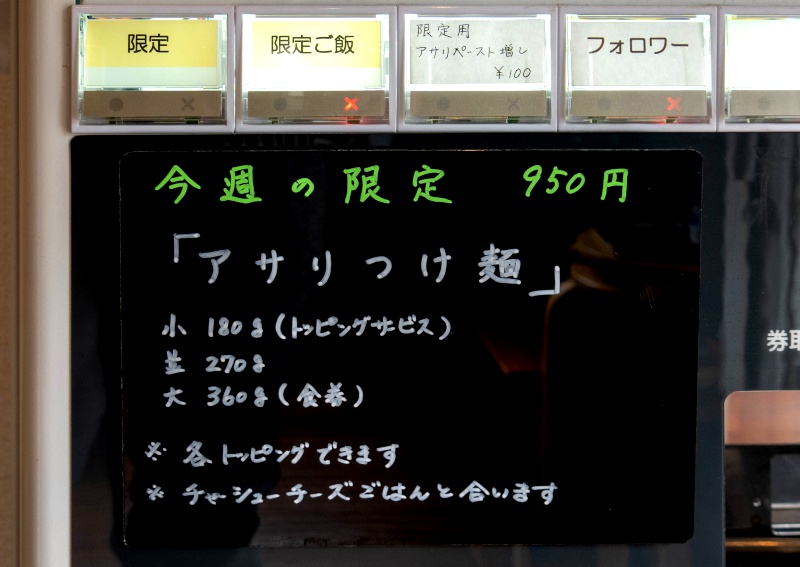 限定
限定ご飯
限定用
アサリペースト増し
¥100
フォロワー
今週の限定 950円
「アサリつけ麺」
小 180g(トッピングサービス)
並 270g
大 360g(食券)
※ 各トッピングできます
※ チャーシューチーズごはんと合います
券取